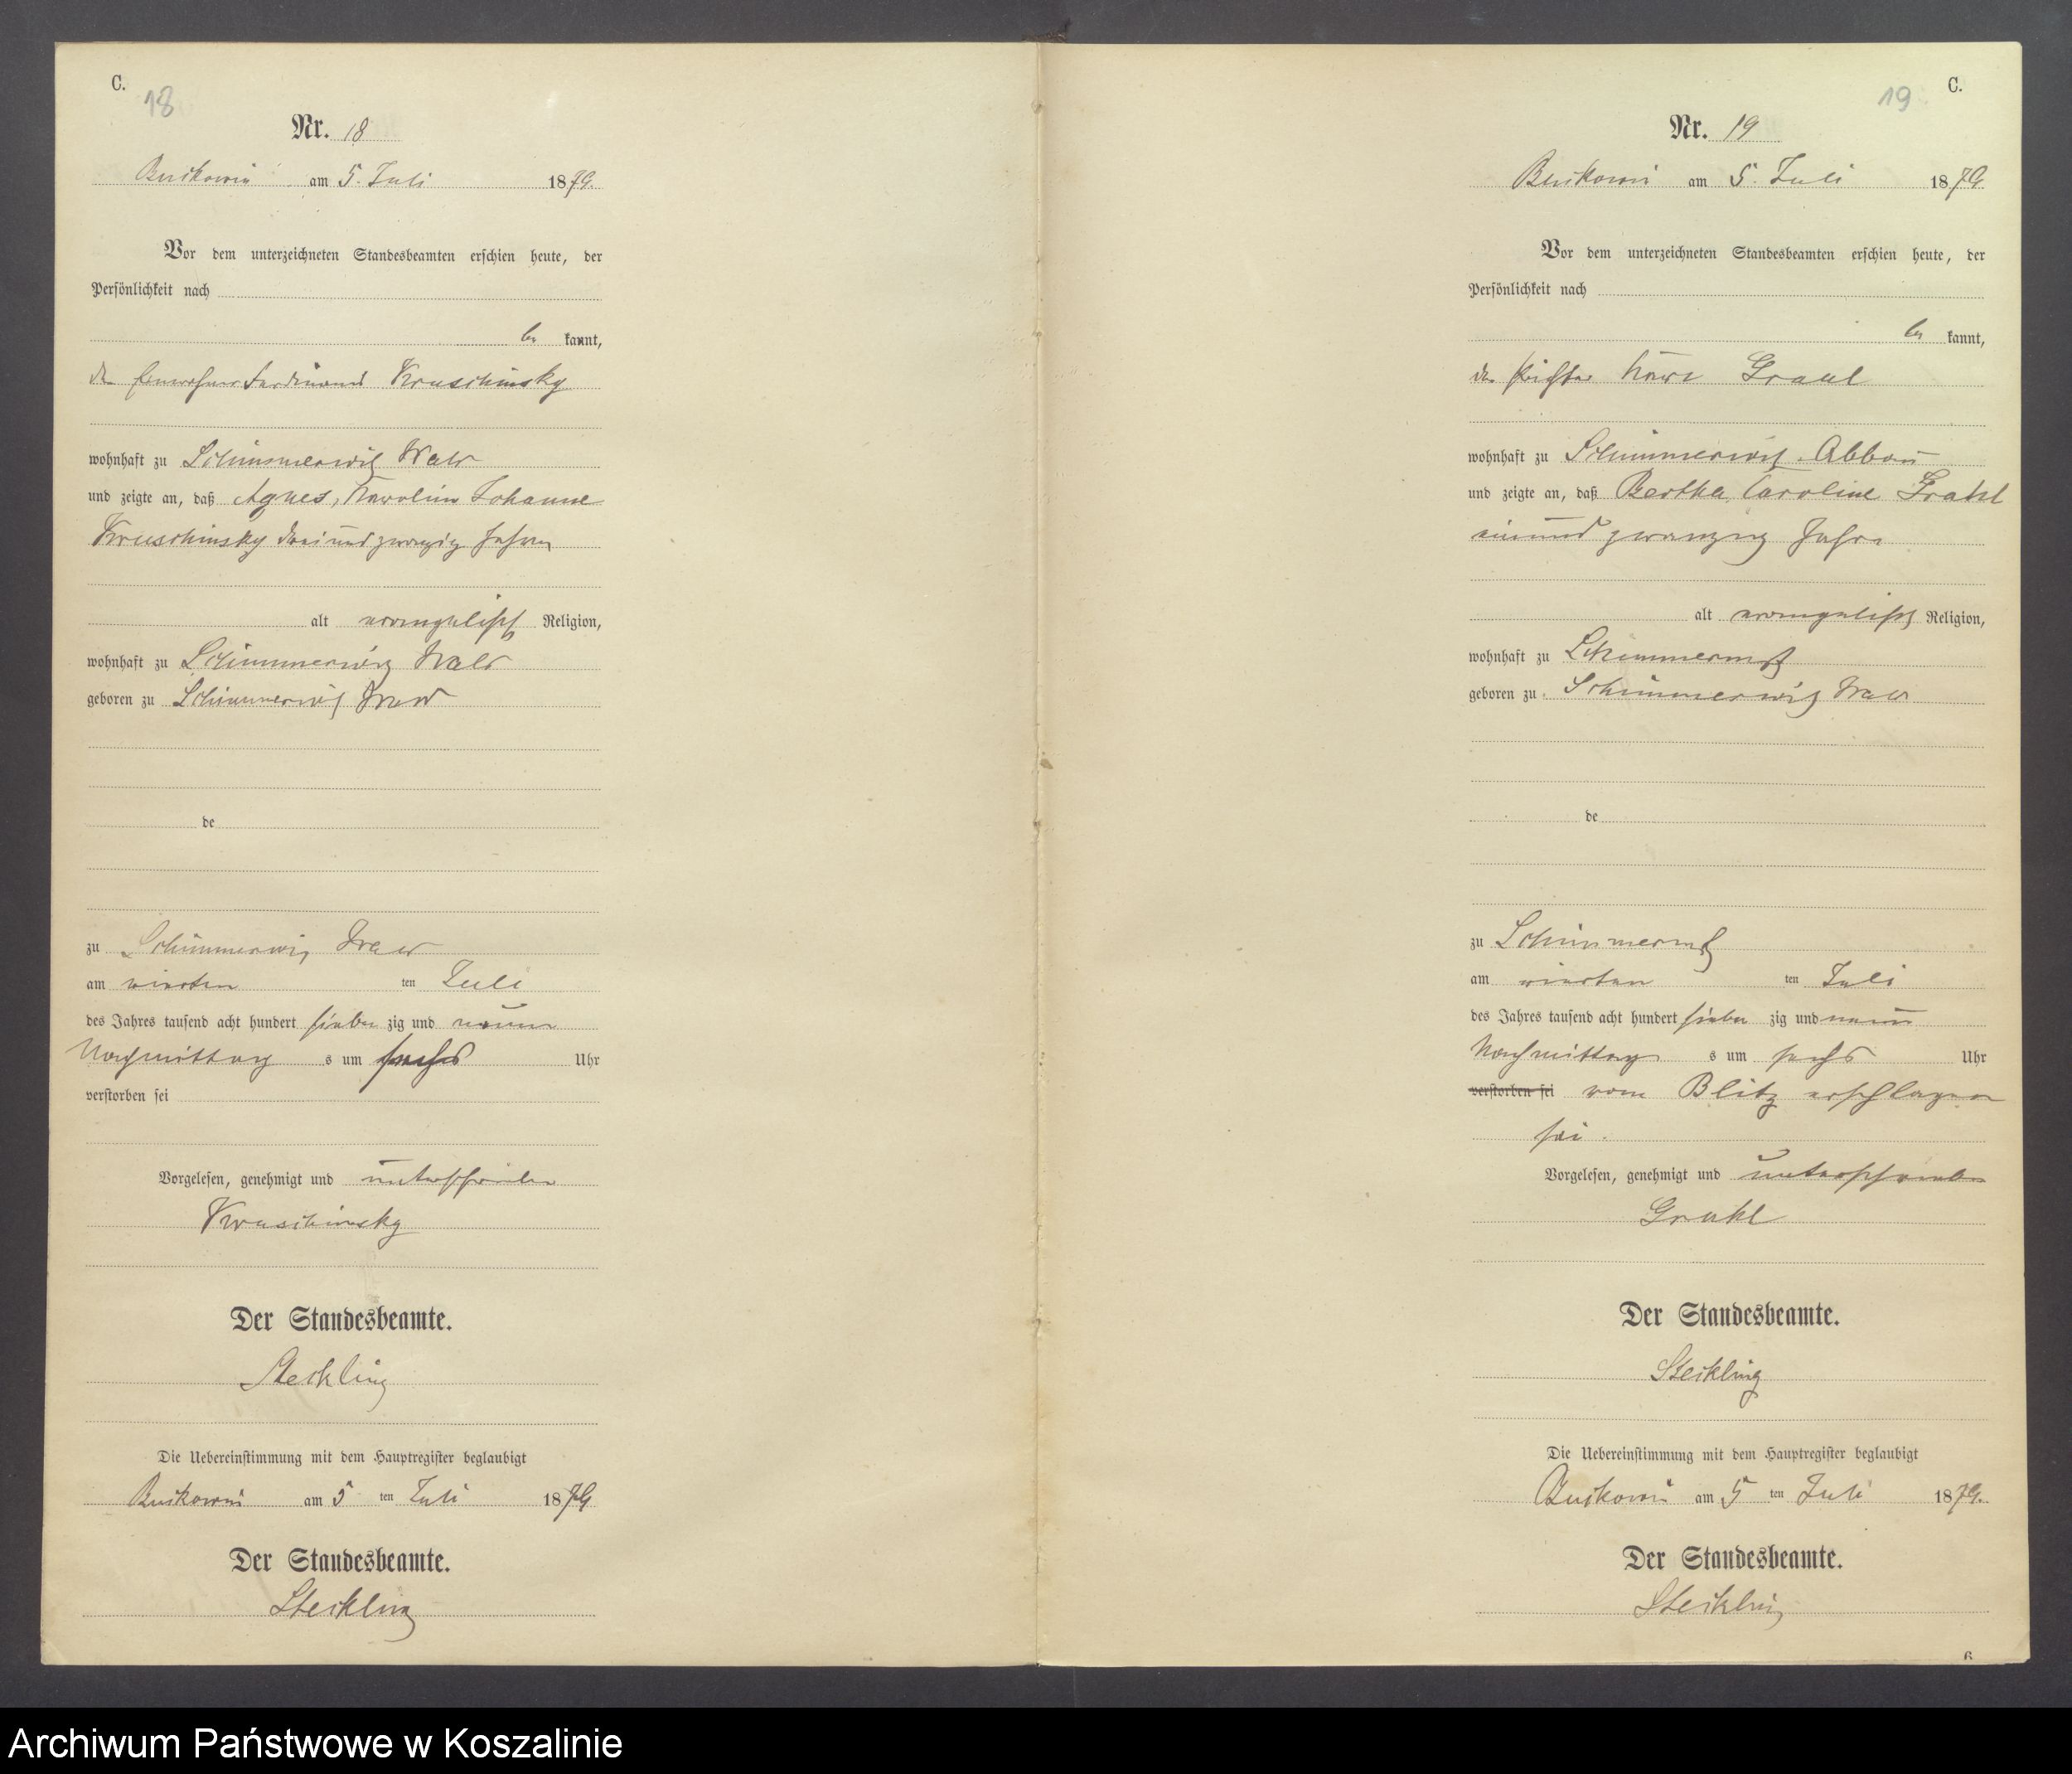 C.
18
Nr. 18
Buckowin am 5. Juli 1879.
Vor dem unterzeichneten Standesbeamten erschien heute, der
Persönlichkeit nach
be kannt,
der Einwohner Ferdinand Kruschinsky
wohnhaft zu Schimmerwitz Wald
und zeigte an, daß Agnes, Karoline Johanne
Kruschinsky dreiundzwanzig Jahre
alt evangelisch Religion,
wohnhaft zu Schimmerwitz Wald
geboren zu Schimmerwitz Wald
de
zu Schimmerwitz Wald
am vierten ten Juli
des Jahres tausend acht hundert sieben zig und neun
Nachmittag s um sechs Uhr
verstorben sei
Vorgelesen, genehmigt und unterschrieben
Kruschinsky
Der Standesbeamte.
Steckling
Die Uebereinstimmung mit dem Hauptregister beglaubigt
Buckowin am 5 ten Juli 1879.
Der Standesbeamte.
Steckling
C.
19
Nr. 19
Buckowin am 5. Juli 1879.
Vor dem unterzeichneten Standesbeamten erschien heute, der
Persönlichkeit nach
be kannt,
der Grahl
wohnhaft zu Schimmerwitz Abbau
und zeigte an, daß Bertha Caroline Grahl
einundzwanzig Jahre
alt evangelisch Religion,
wohnhaft zu Schimmerwitz
geboren zu Schimmerwitz Wald
de
zu Schimmerwitz
am vierten ten Juli
des Jahres tausend acht hundert sieben zig und neun
Nachmittag s um sechs Uhr
verstorben sei vom Blitz erschlagen
sei.
Vorgelesen, genehmigt und unterschrieben
Grahl
Der Standesbeamte.
Steckling
Die Uebereinstimmung mit dem Hauptregister beglaubigt
Buckowin am 5 ten Juli 1879.
Der Standesbeamte.
Steckling
6
Archiwum Państwowe w Koszalinie